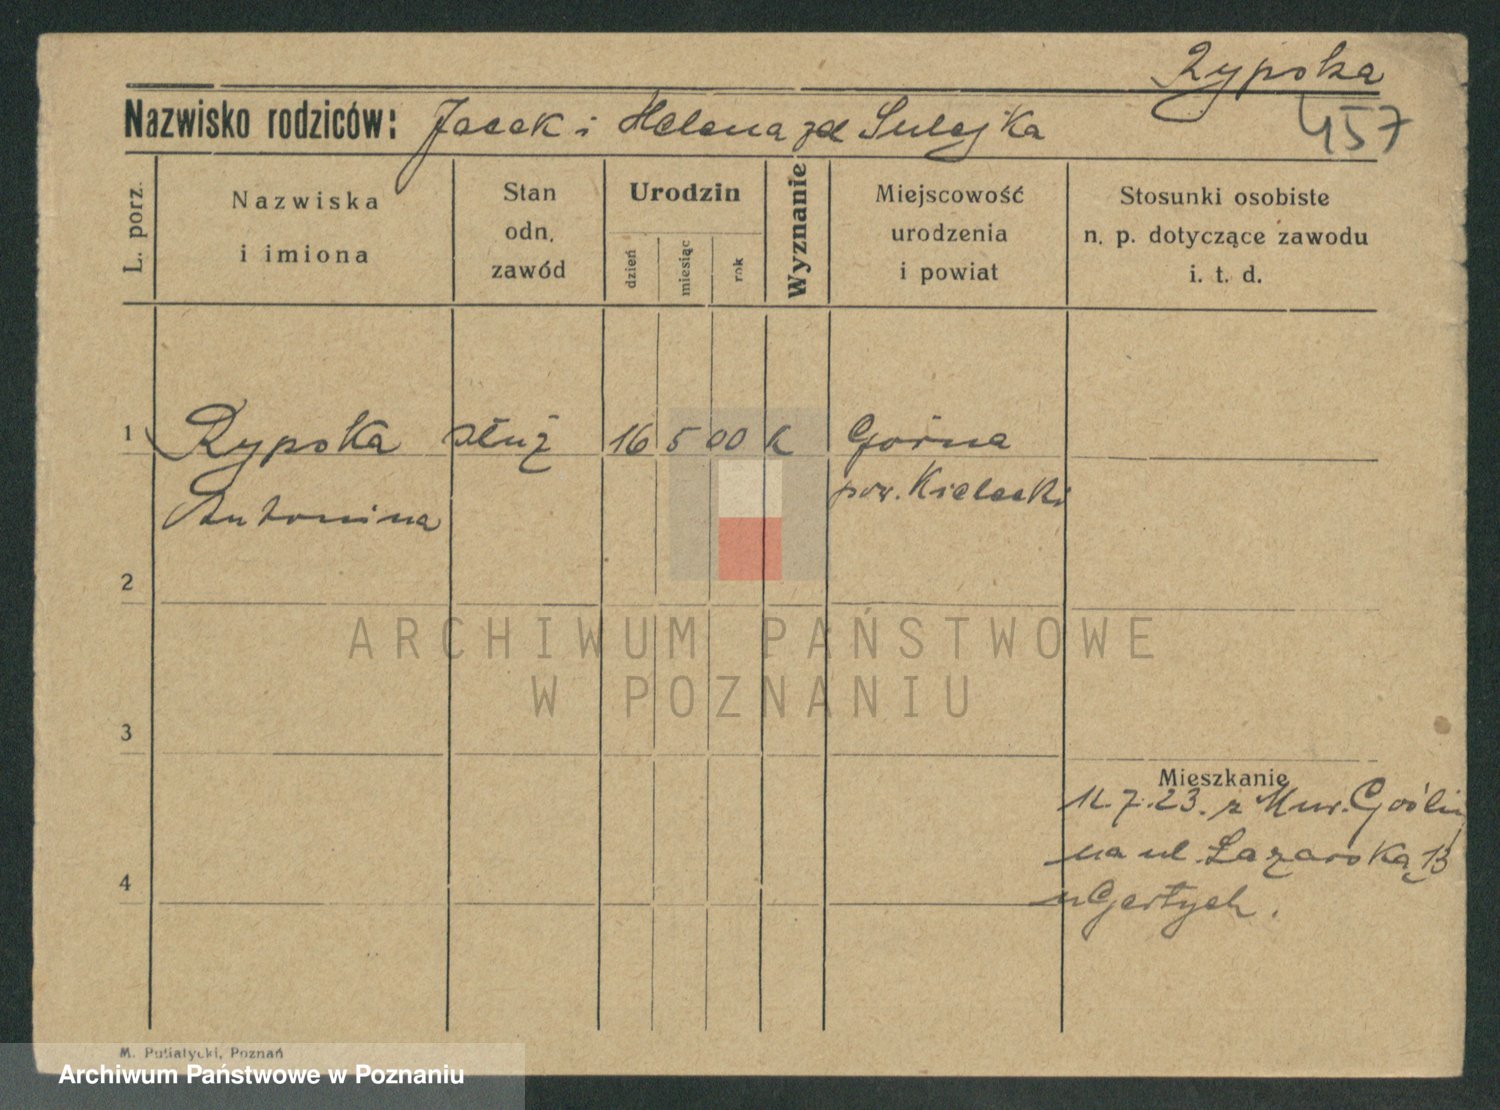 Rypoka
457
Nazwisko rodziców: Jacek i Helena zd Sulejka
L. porz.
Nazwiska
i imiona
Stan
odn.
zawód
Urodzin
dzień
miesiąc
rok
Wyznanie
Miejscowość
urodzenia
i powiat
Stosunki osobiste
n. p. dotyczące zawodu
i. t. d.
1 Rypoka służ 16 5 00 k Górna
pow. Kielecki
Antonina
2
ARCHIWUM PAŃSTWOWE
W POZNANIU
3
Mieszkanie
12.7.23. z Mur. Goślin
na ul. Łazarską 13
4
u Gertych.
M. Putiatycki, Poznań
Archiwum Państwowe w Poznaniu